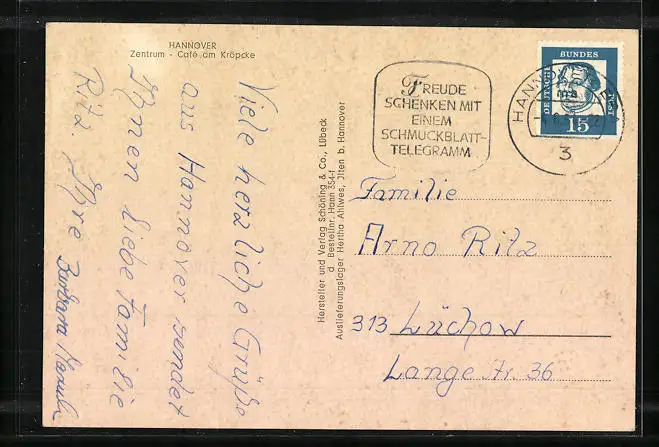 HANNOVER
Zentrum - Café am Kröpcke
Viele herzliche Grüße
aus Hannover sendet
Ihnen liebe Familie
Ritz. Ihre Barbara
Hersteller und Verlag Schöning & Co., Lübeck
d Bestellnr. Hann 354-f
Auslieferungslager Hertha Ahlwes, Ilten b. Hannover
FREUDE
SCHENKEN MIT
EINEM
SCHMUCKBLATT-
TELEGRAMM
HANN
3
DEUTSCHE
BUNDES
POST
15
Familie
Arno Ritz
313 Lüchow
Lange Str. 36